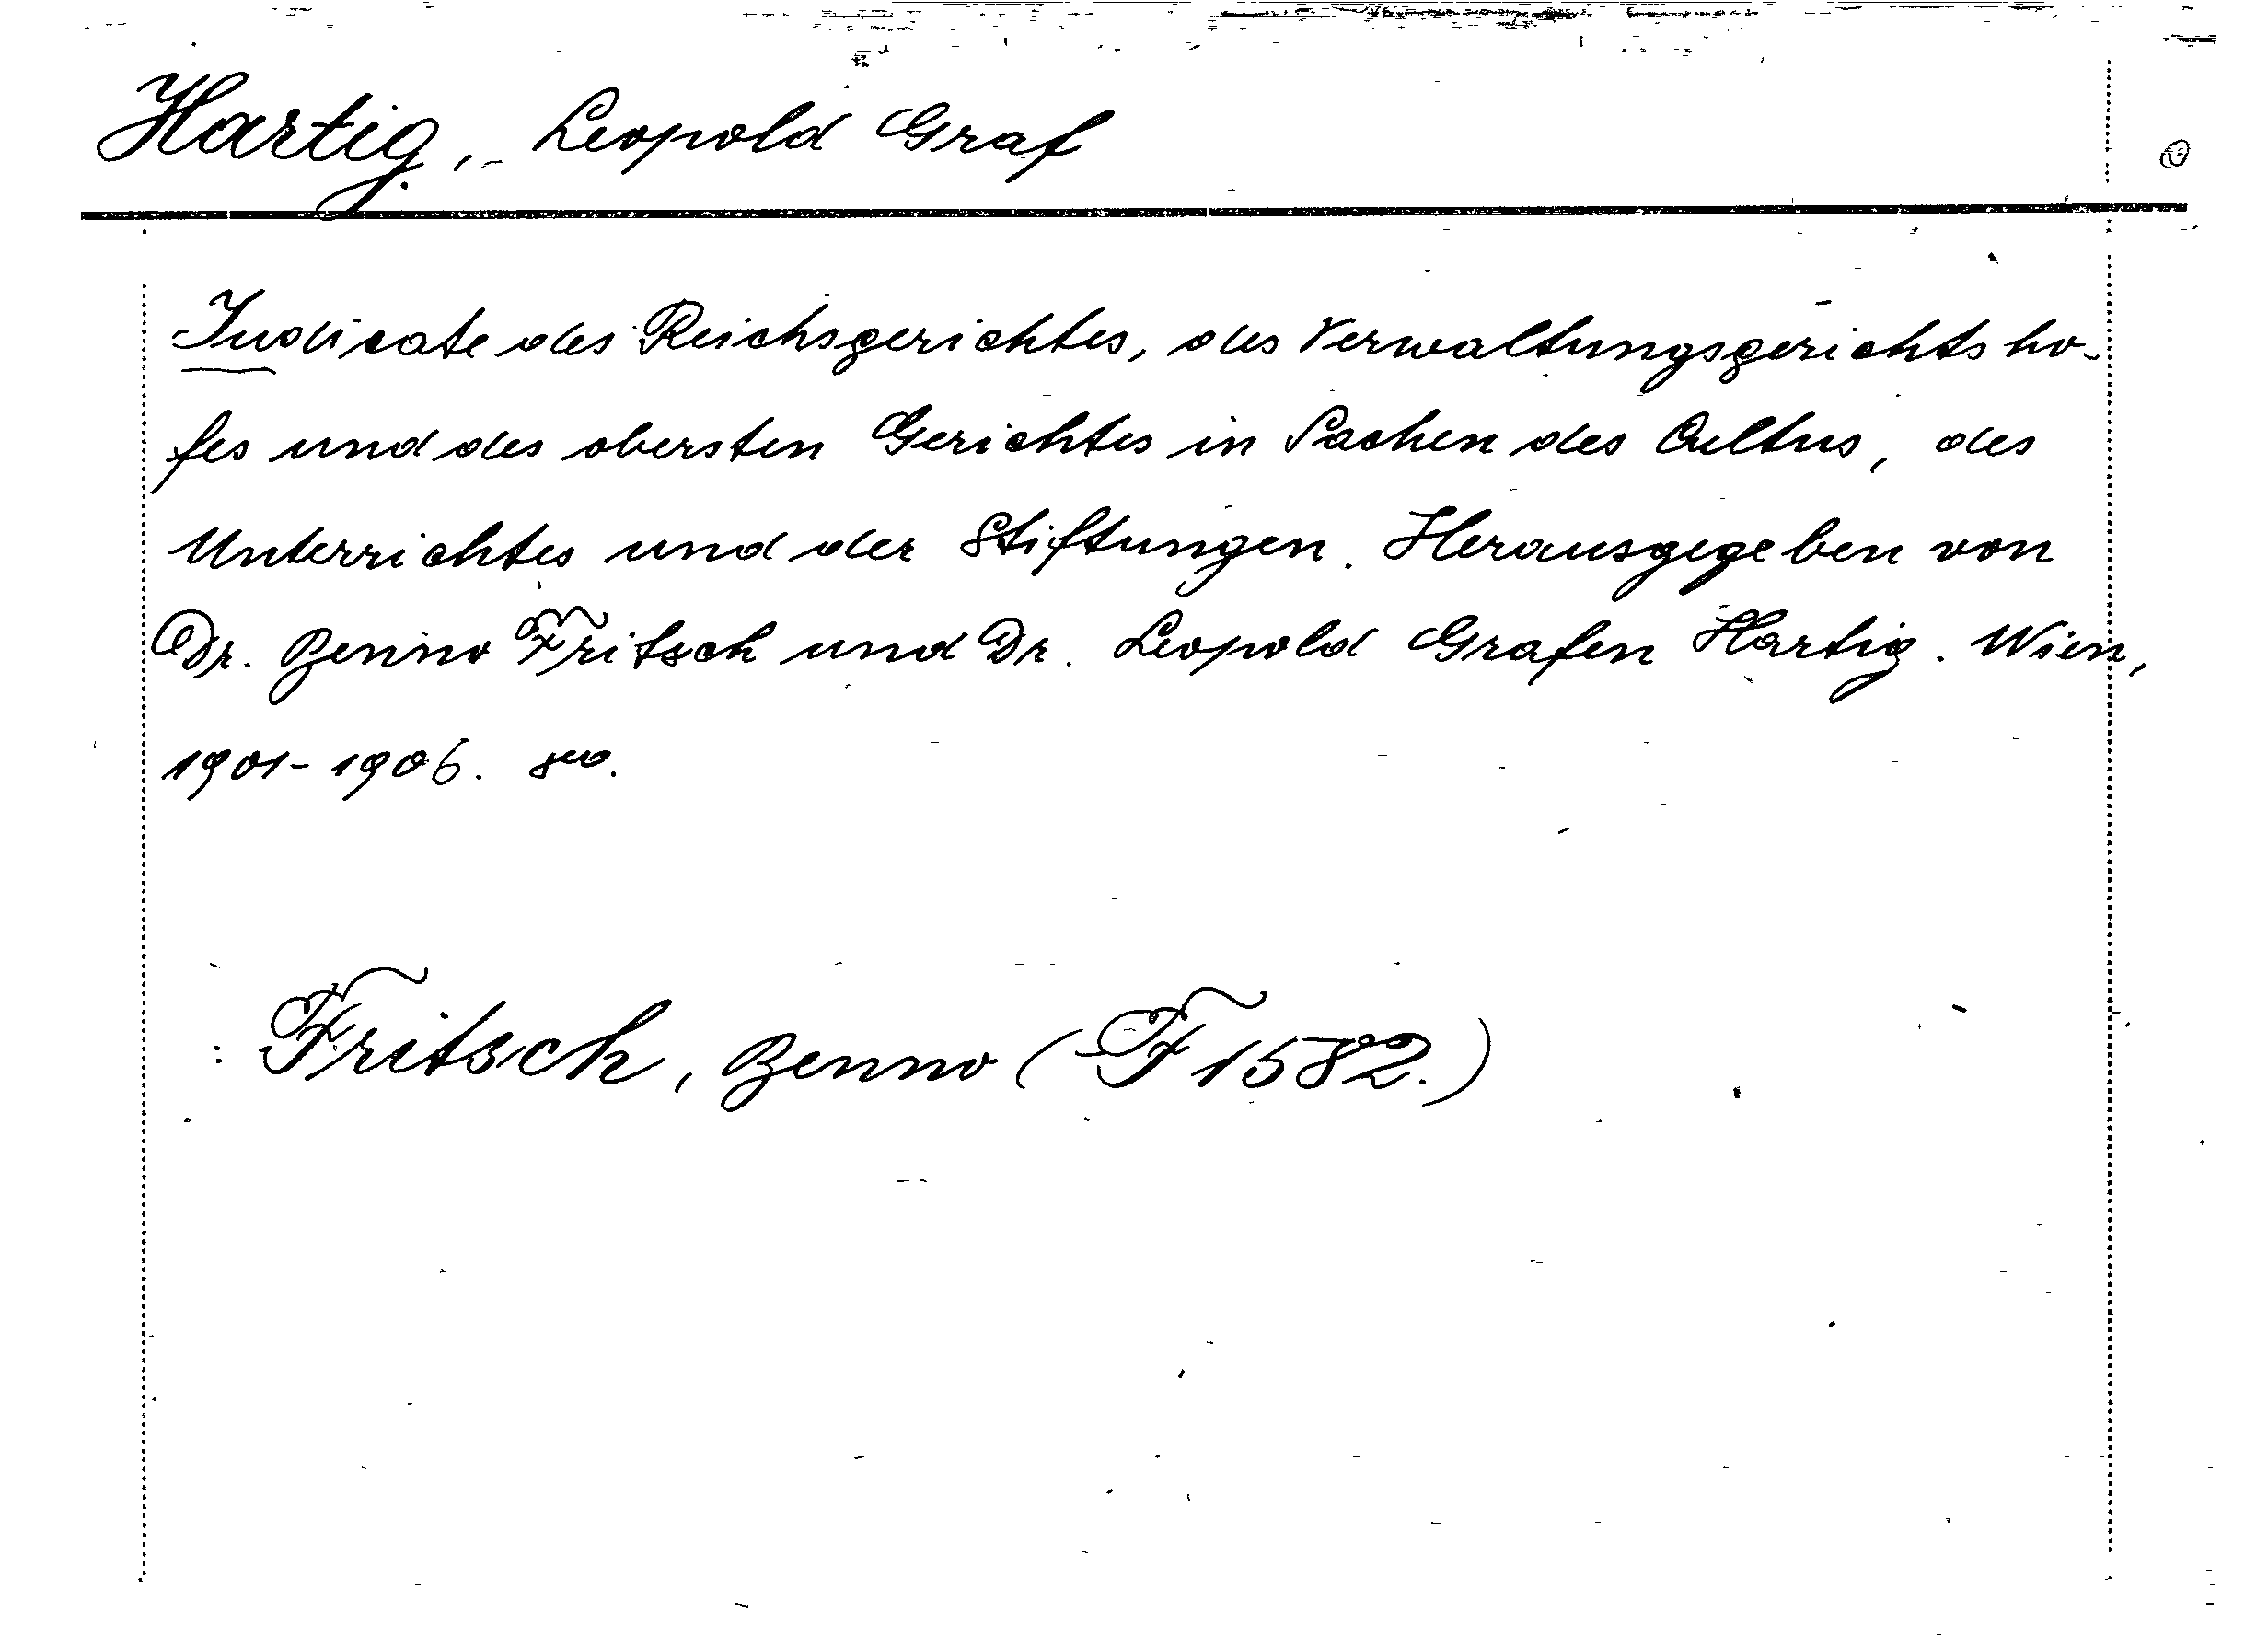 Hartig, Leopold Graf
Judicate des Reichsgerichtes, des Verwaltungsgerichtsho-
fes und des obersten Gerichtes in Sachen des Cultus, des
Unterrichtes und der Stiftungen. Herausgegeben von
Dr. Benno Fritsch und Dr. Leopold Grafen Hartig. Wien,
1901-1906. 8vo.
: Fritsch, Benno (F 1582.)